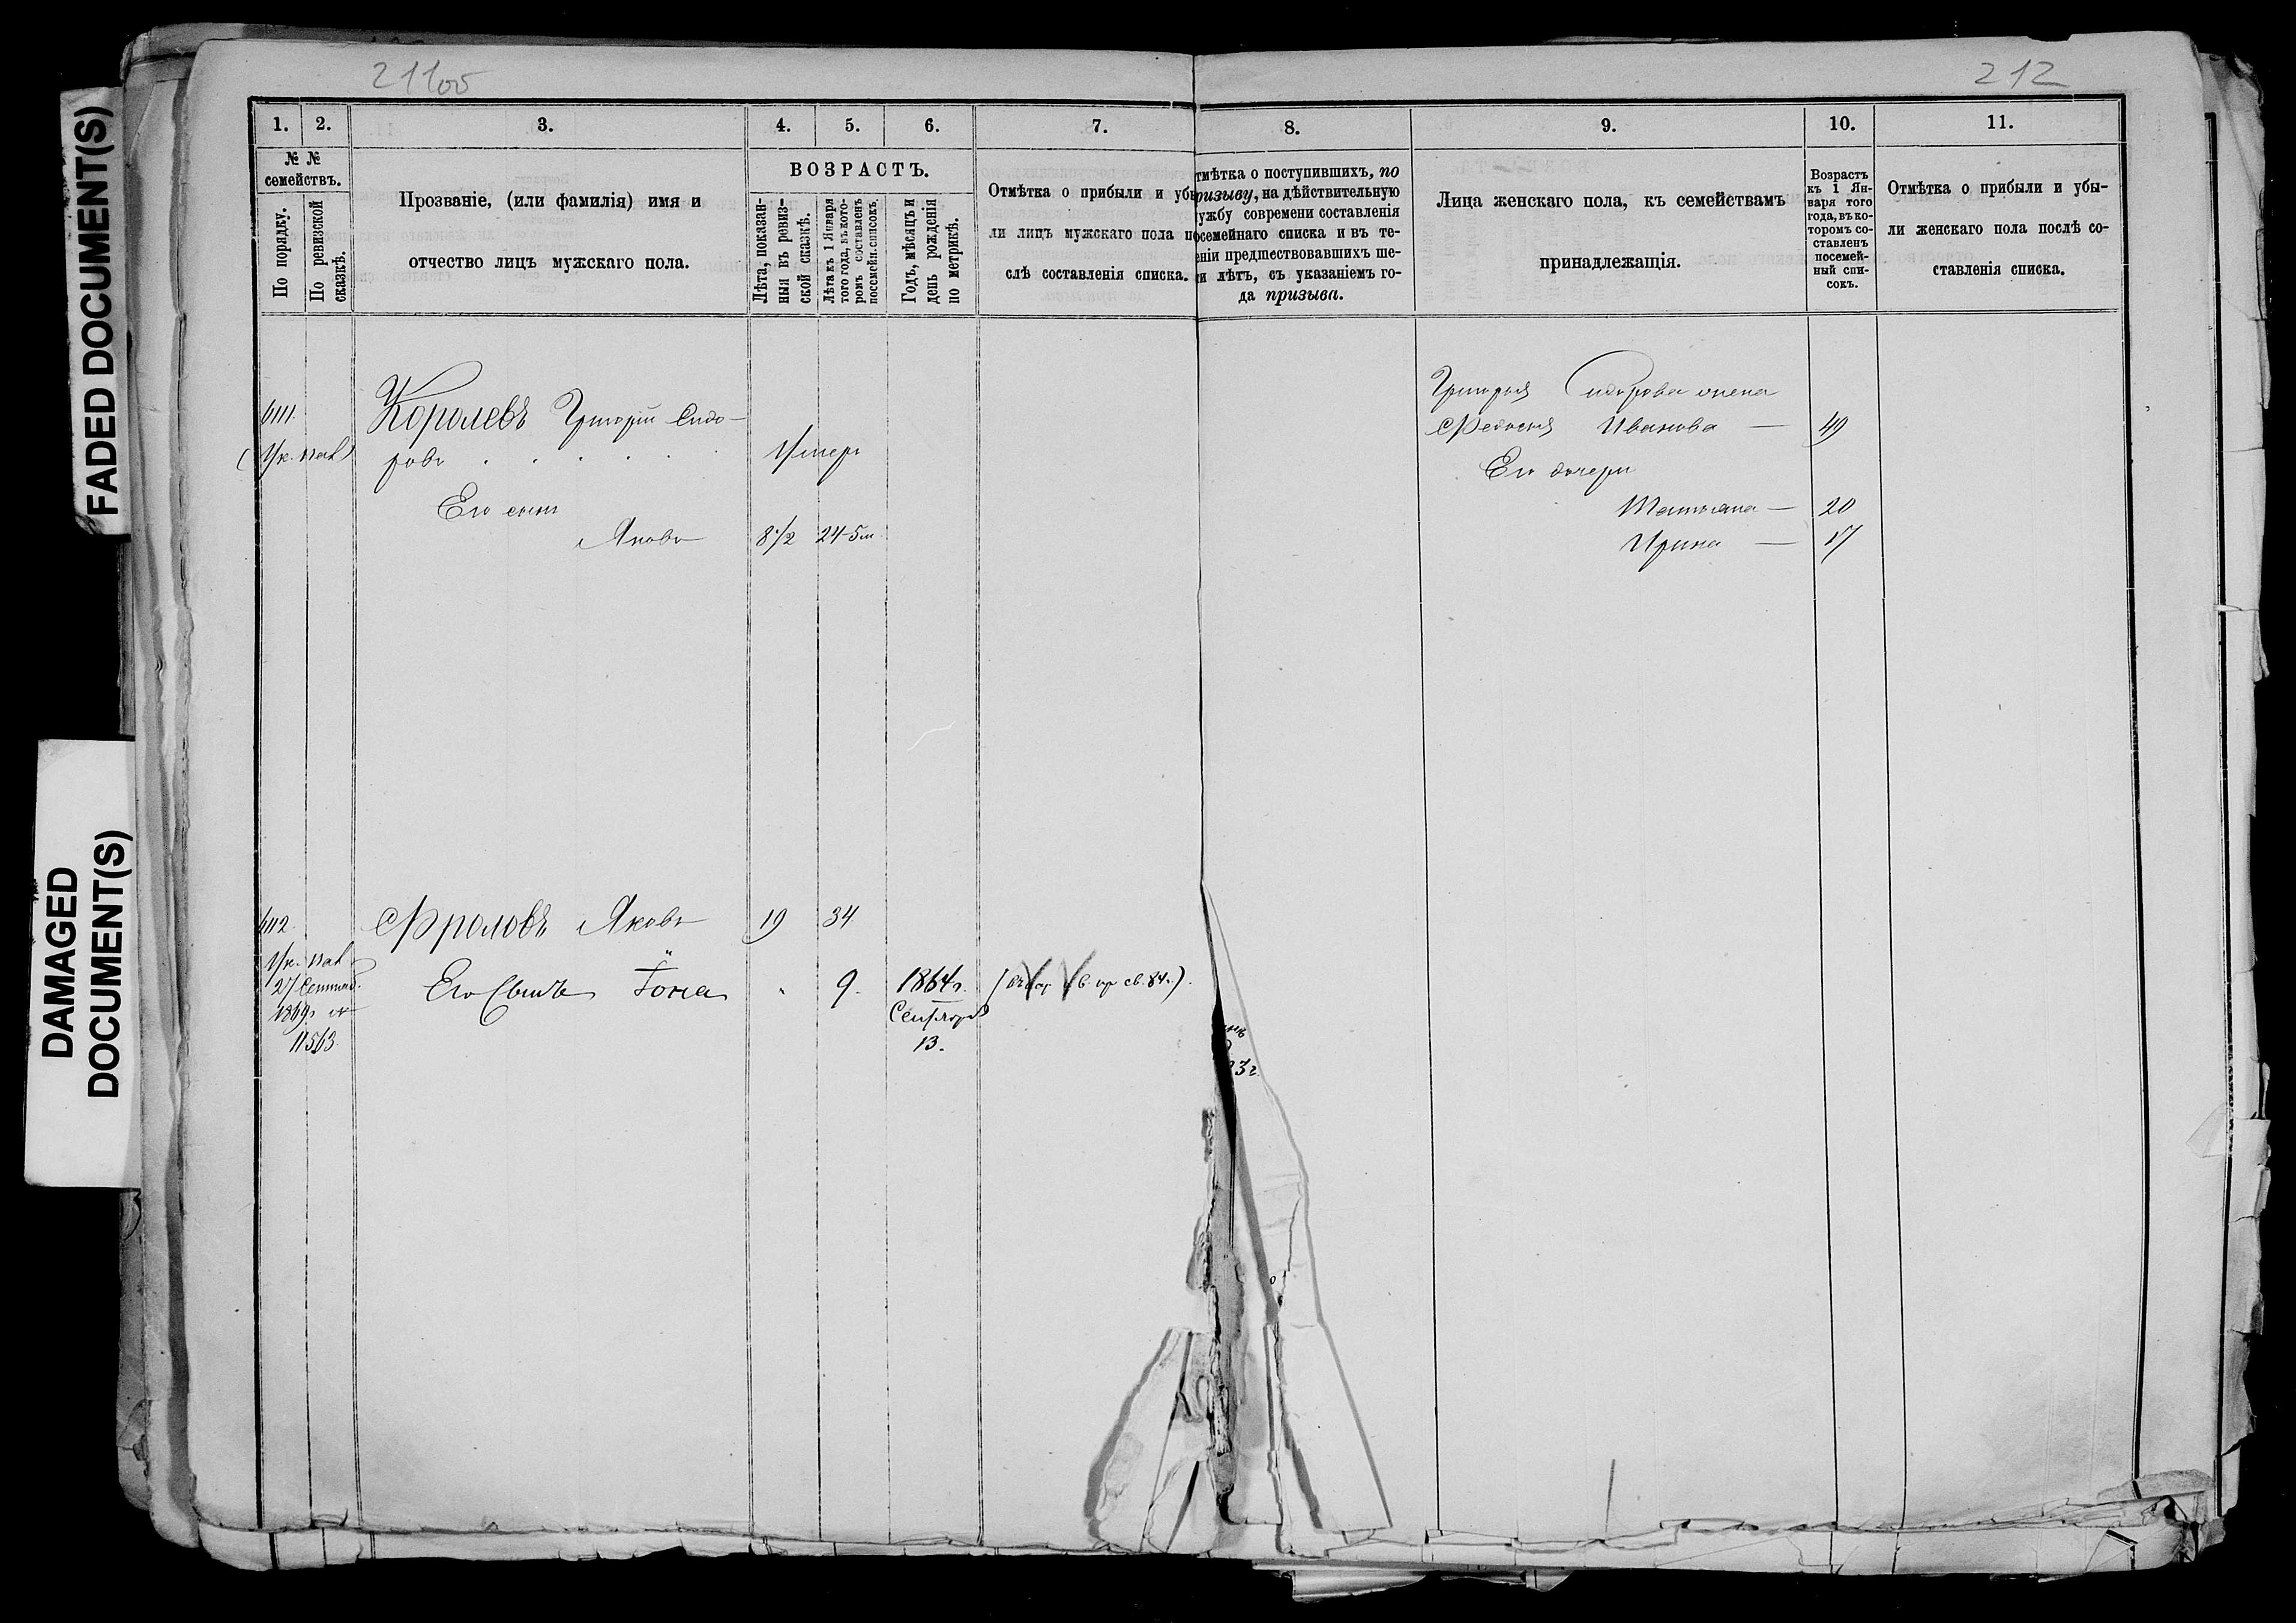 FADED DOCUMENT(S)
DAMAGED
DOCUMENT(S)
211об
212
1. 2. 3. 4. 5. 6. 7.
№ №
семействъ.
По порядку.
По ревизской
сказкѣ.
Прозваніе, (или фамилія) имя и
отчество лицъ мужскаго пола.
ВОЗРАСТЪ.
Лѣта, показан-
ныя въ ревиз-
ской сказкѣ.
Лѣта къ 1 Января
того года, въ кото-
ромъ составленъ
посемейн. списокъ.
Годъ, мѣсяцъ и
день рожденія
по метрикѣ.
Отмѣтка о прибыли и убы
ли лицъ мужскаго пола по
слѣ составленія списка.
8. 9. 10. 11.
тмѣтка о поступившихъ, по
ризыву, на дѣйствительную
ужбу современи составленія
осемейнаго списка и въ те-
еніи предшествовавшихъ ше-
и лѣтъ, съ указаніемъ го-
да призыва.
Лица женскаго пола, къ семействамъ
принадлежащія.
Возрастъ
къ 1 Ян-
варя того
года, въ ко-
торомъ со-
ставленъ
посемей-
ный спи-
сокъ.
Отмѣтка о прибыли и убы-
ли женскаго пола послѣ со-
ставленія списка.
Королевъ Григорій Сидо-
ровъ . . . . . . умеръ
Его сынъ
Яковъ 8 1/2 24-5м.
Григорья Сидорова жена
Федосья Ивановна — 49
Его дочери
Татьяна — 20
Ирина — 17
Фроловъ Яковъ 19 34
Его сынъ Іона " 9. 1864г.
Сентября
13.
1869г. №
11563
3г.